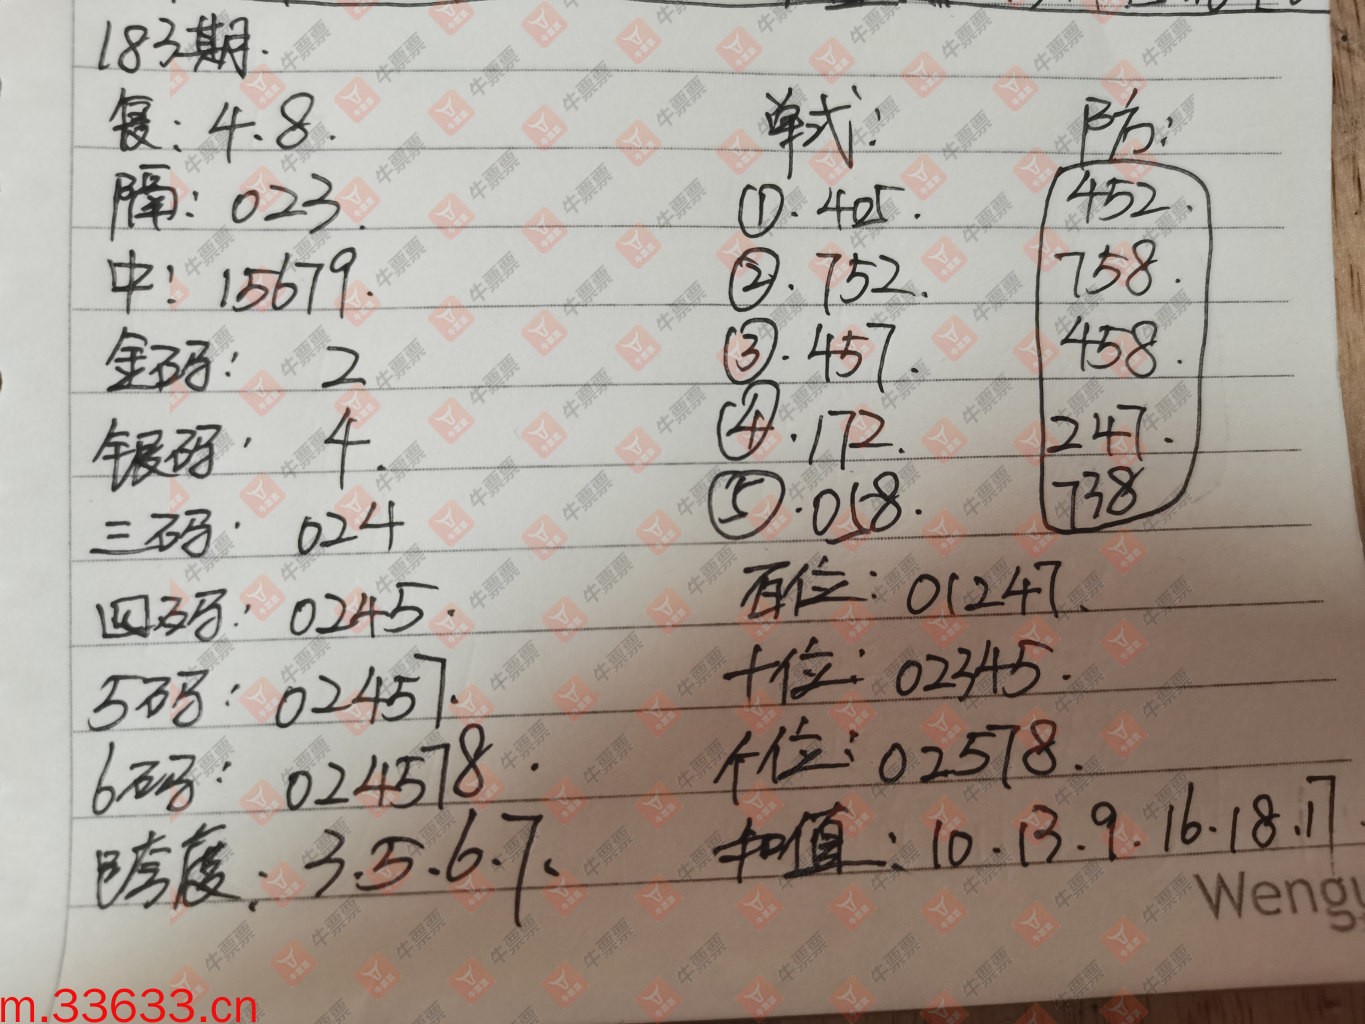 183期.
复: 4.8.
隔: 023.
中: 15679.
金码: 2
银码: 4.
三码: 024
四码: 0245.
5码: 02457.
6码: 024578.
跨度: 3.5.6.7.
单式:
①. 405.
②. 752.
③. 457.
④. 172.
⑤. 058.
防:
452.
758.
458.
247.
738
百位: 01247.
十位: 02345.
个位: 02578.
和值: 10.13.9.16.18.17.
Wengu
牛票票
m.33633.cn